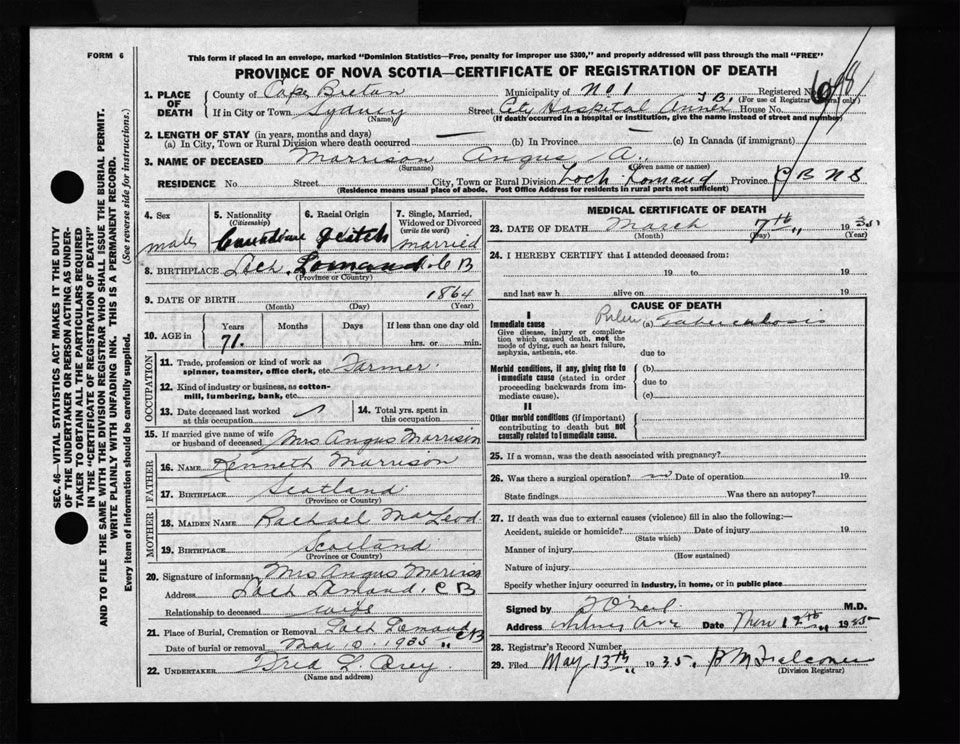 FORM 6
This form if placed in an envelope, marked "Dominion Statistics—Free, penalty for improper use $300," and properly addressed will pass through the mail "FREE"
PROVINCE OF NOVA SCOTIA—CERTIFICATE OF REGISTRATION OF DEATH
1. PLACE OF DEATH County of Cape Breton Municipality of No 1 Registered No. 698 (For use of Registrar General only)
If in City or Town Sydney Street City Hospital Annex T.B. House No.
(If death occurred in a hospital or institution, give the name instead of street and number)
2. LENGTH OF STAY (in years, months and days)
(a) In City, Town or Rural Division where death occurred — (b) In Province — (c) In Canada (if immigrant)
3. NAME OF DECEASED Morrison Angus A.
(Surname) (Given name or names)
RESIDENCE No. Street City, Town or Rural Division Loch Lomand Province C B N S
(Residence means usual place of abode. Post Office Address for residents in rural parts not sufficient)
4. Sex male
5. Nationality (Citizenship) Canadian
6. Racial Origin
7. Single, Married, Widowed or Divorced (write the word) married
8. BIRTHPLACE Loch Lomand C B
(Province or Country)
9. DATE OF BIRTH 1864
(Month) (Day) (Year)
10. AGE in Years 71. Months Days If less than one day old hrs. or min.
OCCUPATION
11. Trade, profession or kind of work as spinner, teamster, office clerk, etc. Farmer.
12. Kind of industry or business, as cotton-mill, lumbering, bank, etc.
13. Date deceased last worked at this occupation
14. Total yrs. spent in this occupation
15. If married give name of wife or husband of deceased Mrs Angus Morrison
FATHER
16. NAME Kenneth Morrison
17. BIRTHPLACE Scotland
(Province or Country)
MOTHER
18. MAIDEN NAME Rachael MacLeod
19. BIRTHPLACE Scotland
(Province or Country)
20. Signature of informant Mrs Angus Morrison
Address Loch Lomand, C B
Relationship to deceased wife
21. Place of Burial, Cremation or Removal Loch Lomand C B
Date of burial or removal Mar 10 1935
22. UNDERTAKER Fred L.
(Name and address)
MEDICAL CERTIFICATE OF DEATH
23. DATE OF DEATH March 7th 1935
(Month) (Day) (Year)
24. I HEREBY CERTIFY that I attended deceased from:
19 to 19
and last saw h alive on 19
CAUSE OF DEATH
I
Immediate cause (a) Tuberculosis
Give disease, injury or complication which caused death, not the mode of dying, such as heart failure, asphyxia, asthenia, etc.
due to
Morbid conditions, if any, giving rise to immediate cause (stated in order proceeding backwards from immediate cause).
(b)
due to
(c)
II
Other morbid conditions (if important) contributing to death but not causally related to immediate cause.
25. If a woman, was the death associated with pregnancy?
26. Was there a surgical operation? no Date of operation 19
State findings Was there an autopsy?
27. If death was due to external causes (violence) fill in also the following:—
Accident, suicide or homicide? Date of injury 19
(State which)
Manner of injury
(How sustained)
Nature of injury
Specify whether injury occurred in industry, in home, or in public place
Signed by O'Neil M.D.
Address Whitney Ave Date 12th 1935
28. Registrar's Record Number
29. Filed May 13th 1935. Falconer
(Division Registrar)
SEC. 46—VITAL STATISTICS ACT MAKES IT THE DUTY
OF THE UNDERTAKER OR PERSON ACTING AS UNDER-
TAKER TO OBTAIN ALL THE PARTICULARS REQUIRED
IN THE "CERTIFICATE OF REGISTRATION OF DEATH"
AND TO FILE THE SAME WITH THE DIVISION REGISTRAR WHO SHALL ISSUE THE BURIAL PERMIT.
WRITE PLAINLY WITH UNFADING INK. THIS IS A PERMANENT RECORD.
Every item of information should be carefully supplied. (See reverse side for instructions.)